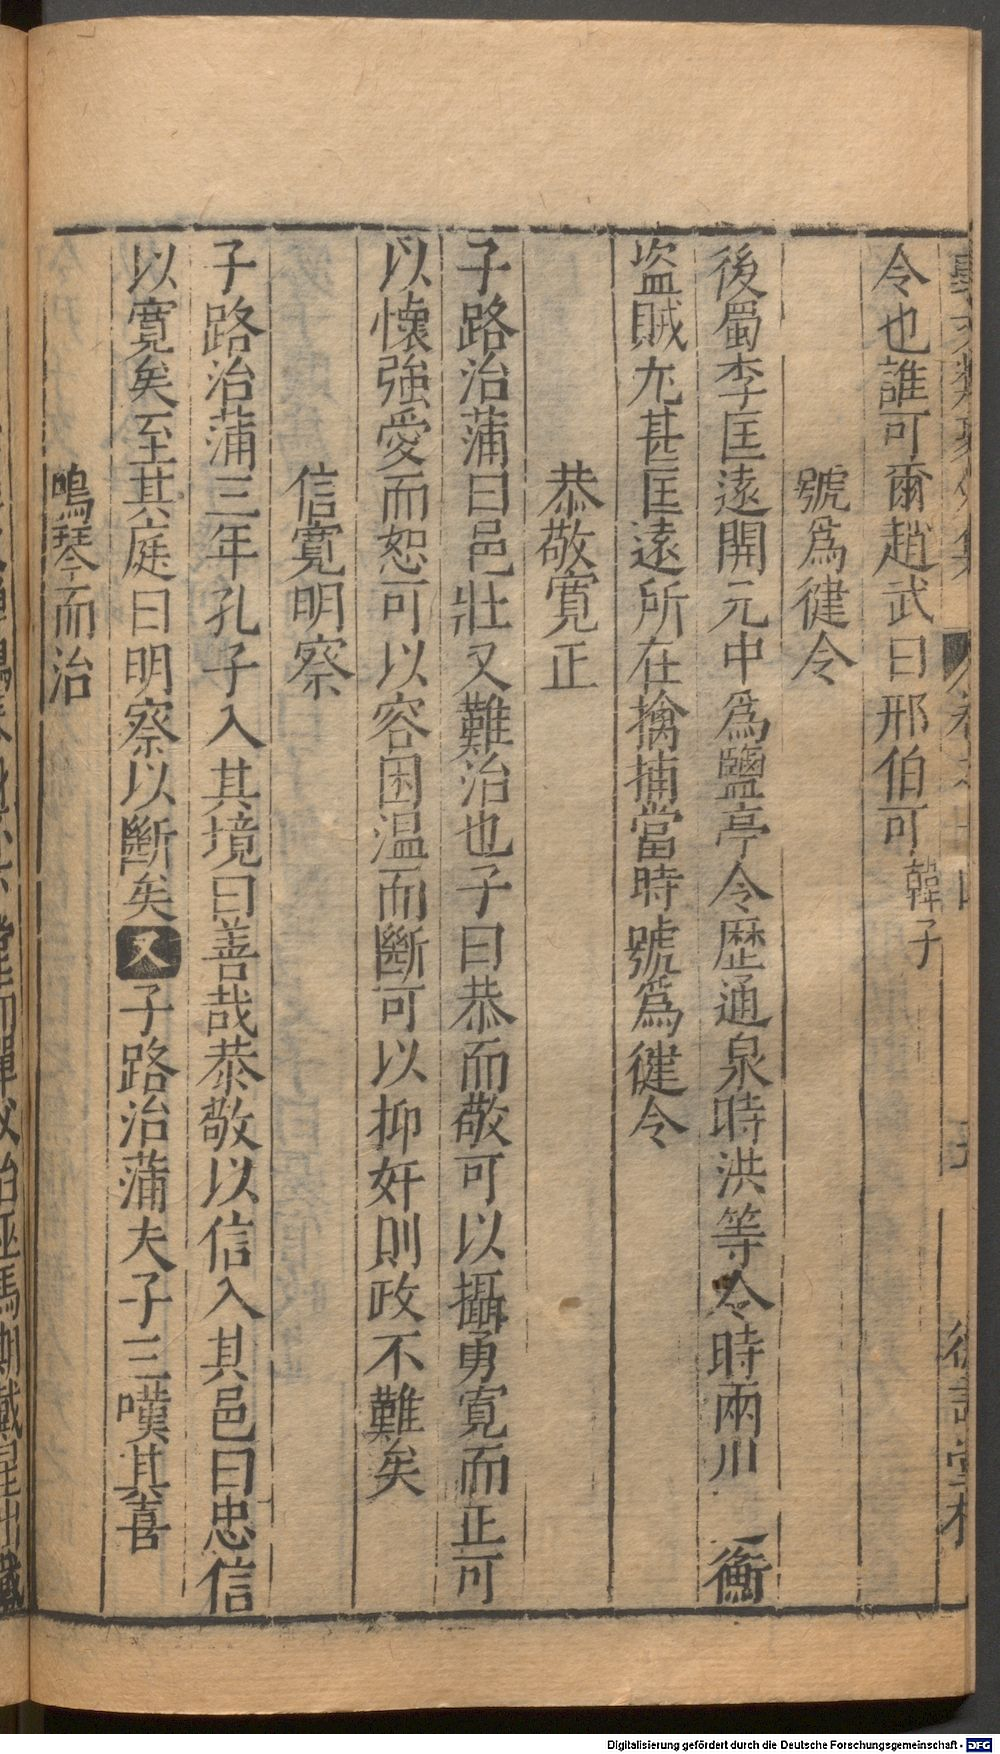 令也誰可爾趙武曰邢伯可韓子
號爲健令
後蜀李匡遠開元中爲鹽亭令歷通泉時洪等令時兩川一衡
盜賊尤甚匡遠所在擒捕當時號爲健令
恭敬寬正
子路治蒲曰邑壯又難治也子曰恭而敬可以攝勇寬而正可
以懷強愛而恕可以容困温而斷可以抑奸則政不難矣
信寬明察
子路治蒲三年孔子入其境曰善哉恭敬以信入其邑曰忠信
以寬矣至其庭曰明察以斷矣又子路治蒲夫子三嘆其善
鳴琴而治
Digitalisierung gefördert durch die Deutsche Forschungsgemeinschaft - DFG